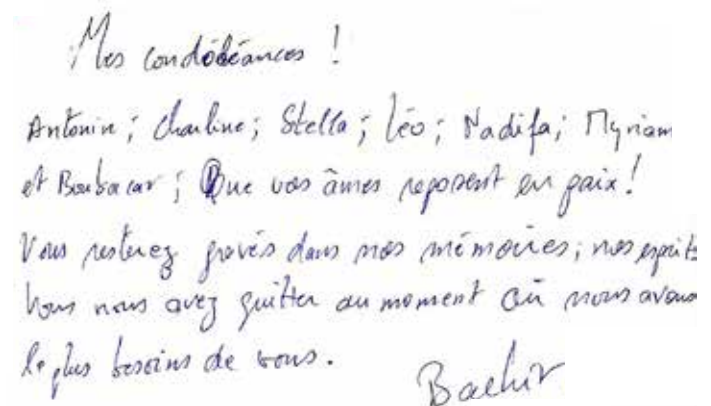 Mes condoléances !
Antonin ; Charline ; Stella ; Léo ; Nadifa ; Myriam
et Boubacar ; Que vos âmes reposent en paix !
Vous resterez gravés dans nos mémoires ; nos esprits
Vous nous avez quitter au moment où nous avons
le plus besoins de vous.
Bachir